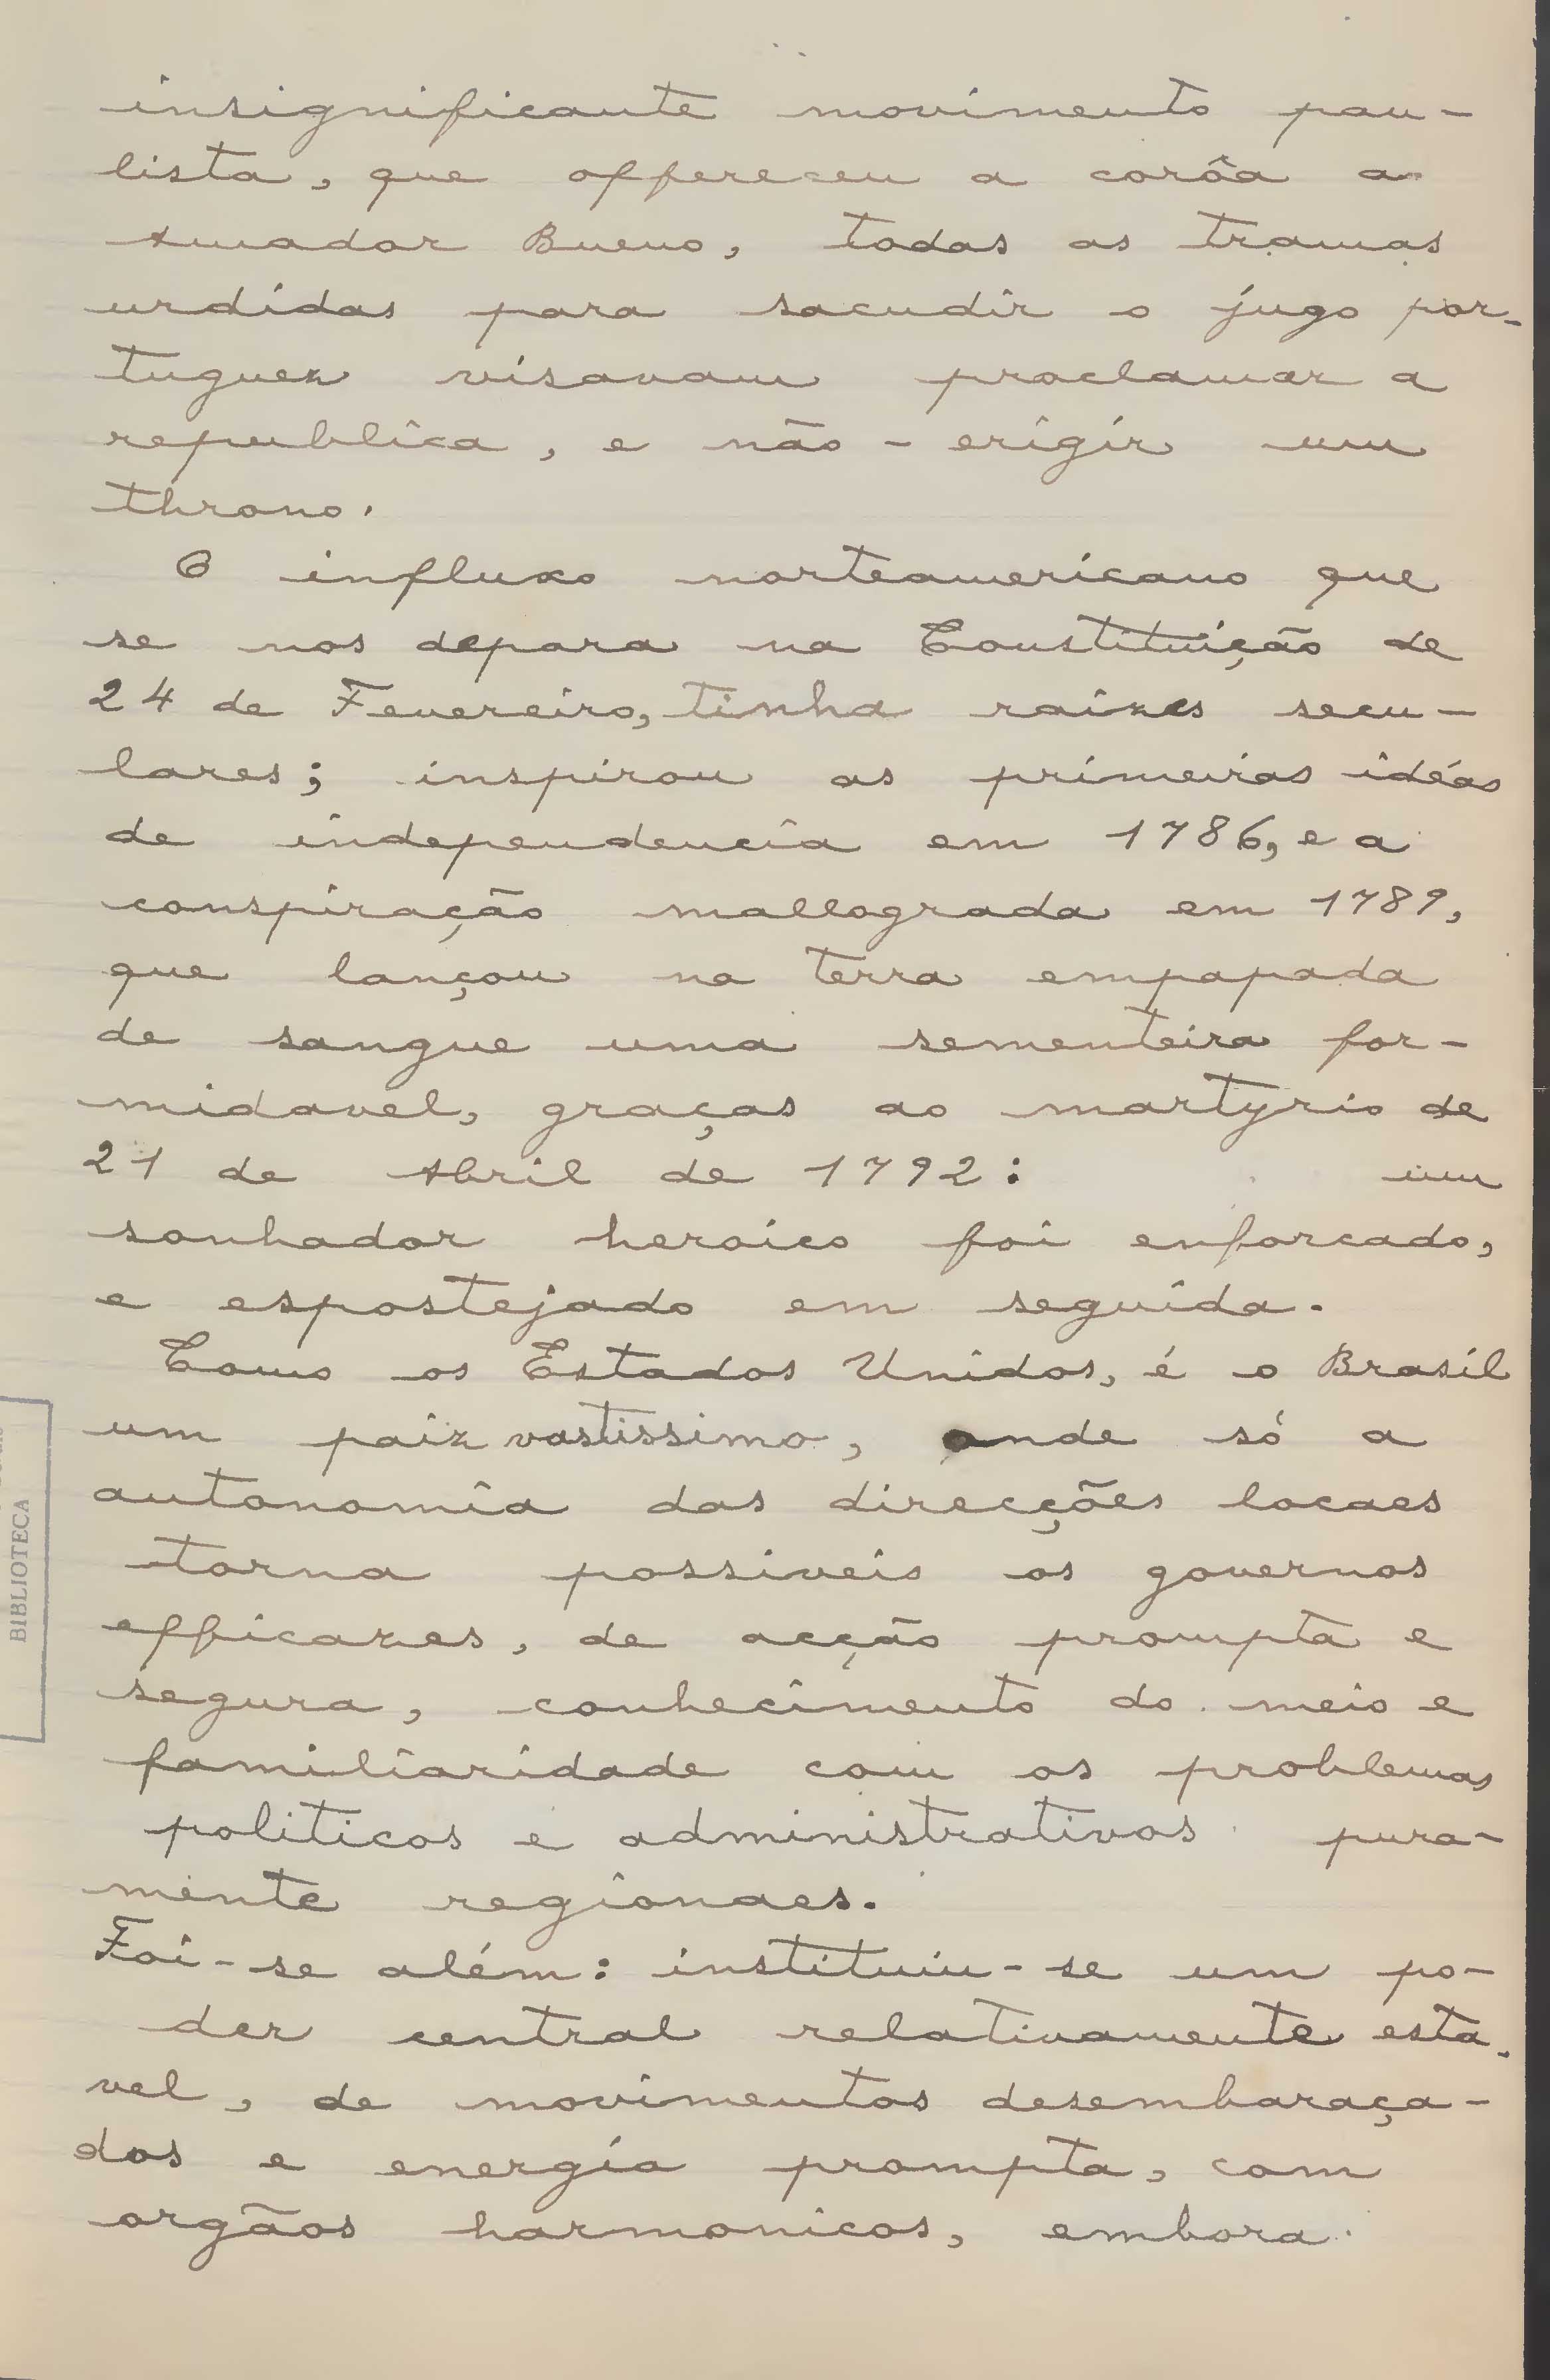 insignificante movimento pau-
lista, que offereceu a corôa a
Amador Bueno, todas as tramas
urdidas para sacudir o jugo por-
tuguez visavam proclamar a
republica, e não - erigir um
throno.
O influxo norteamericano que
se nos depara na Constituição de
24 de Fevereiro, tinha raizes secu-
lares; inspirou as primeiras idéas
de independencia em 1786, e a
conspiração mallograda em 1789,
que lançou na terra empapada
de sangue uma sementeira for-
midavel, graças ao martyrio de
21 de Abril de 1792: um
sonhador heroico foi enforcado,
e espostejado em seguida.
Como os Estados Unidos, é o Brasil
um paiz vastissimo, onde só a
autonomia das direcções locaes
torna possiveis os governos
efficazes, de acção prompta e
segura, conhecimento do meio e
familiaridade com os problemas
politicos e administrativos pura-
mente regionaes.
Foi-se além: instituiu-se um po-
der central relativamente esta-
vel, de movimentos desembaraça-
dos e energia prompta, com
orgãos harmonicos, embora
BIBLIOTECA